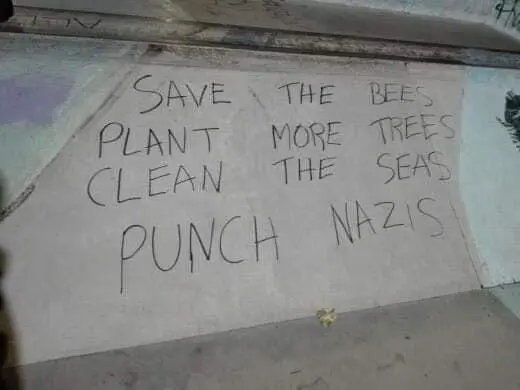 SAVE THE BEES
PLANT MORE TREES
CLEAN THE SEAS
PUNCH NAZIS